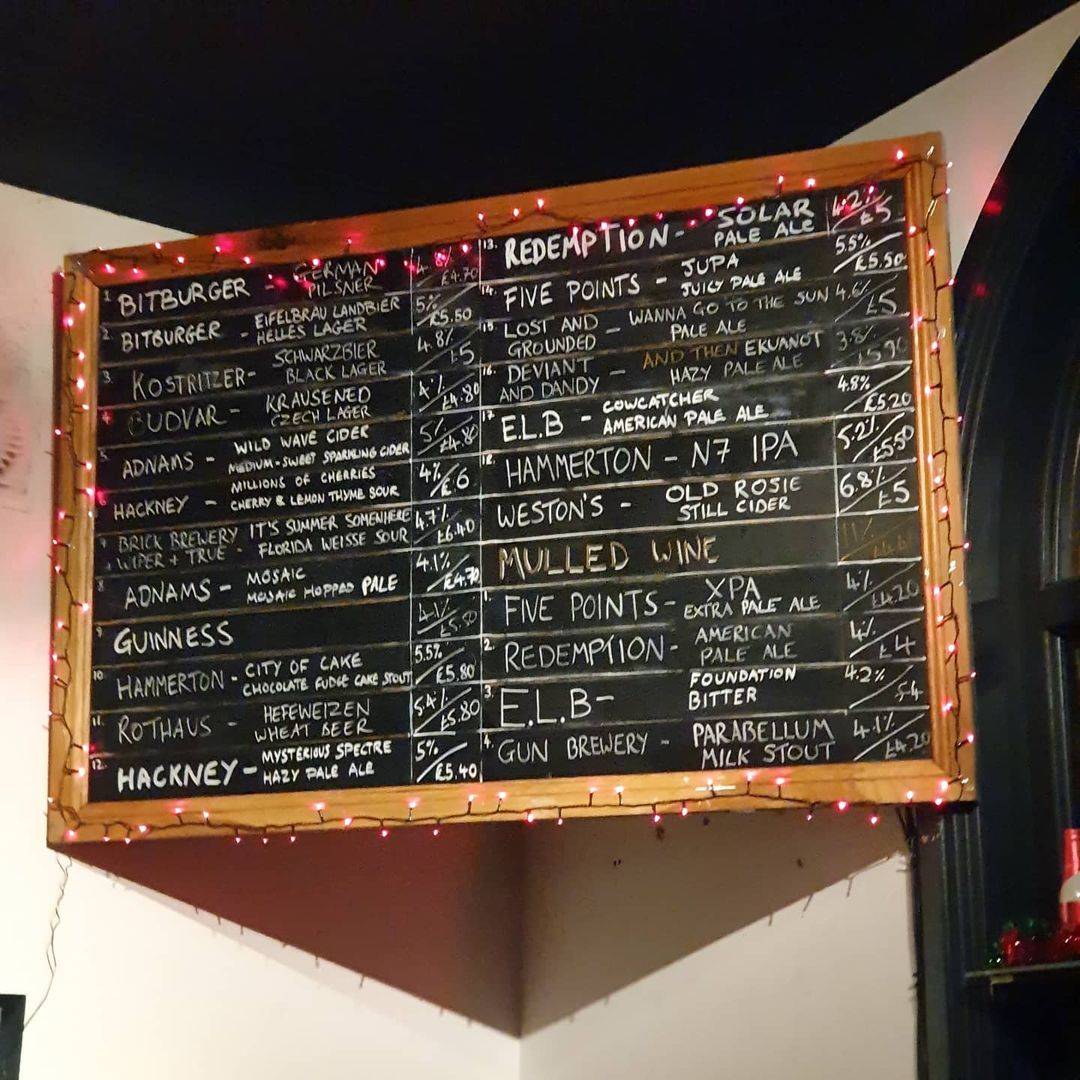 1. BITBURGER - GERMAN PILSNER 4.8% £4.70
2. BITBURGER - EIFELBRAU LANDBIER HELLES LAGER 5% £5.50
3. KOSTRITZER - SCHWARZBIER BLACK LAGER 4.8% £5
4 BUDVAR - KRAUSENED CZECH LAGER 4% £4.80
5. ADNAMS - WILD WAVE CIDER MEDIUM-SWEET SPARKLING CIDER 5% £4.80
HACKNEY - MILLIONS OF CHERRIES CHERRY & LEMON THYME SOUR 4% £6
BRICK BREWERY WIPER + TRUE - IT'S SUMMER SOMEWHERE FLORIDA WEISSE SOUR 4.7% £6.40
8 ADNAMS - MOSAIC MOSAIC HOPPED PALE 4.1% £4.70
9 GUINNESS 4.1% £5.50
10. HAMMERTON - CITY OF CAKE CHOCOLATE FUDGE CAKE STOUT 5.5% £5.80
11. ROTHAUS - HEFEWEIZEN WHEAT BEER 5.4% £5.80
12. HACKNEY - MYSTERIOUS SPECTRE HAZY PALE ALE 5% £5.40
13. REDEMPTION - SOLAR PALE ALE 4.2% £5
14. FIVE POINTS - JUPA JUICY PALE ALE 5.5% £5.50
15. LOST AND GROUNDED - WANNA GO TO THE SUN PALE ALE 4.6% £5
16. DEVIANT AND DANDY - AND THEN EKUANOT HAZY PALE ALE 3.8% £5.90
17 E.L.B - COWCATCHER AMERICAN PALE ALE 4.8% £5.20
18. HAMMERTON - N7 IPA 5.2% £5.50
WESTON'S - OLD ROSIE STILL CIDER 6.8% £5
MULLED WINE 11%
1. FIVE POINTS - XPA EXTRA PALE ALE 4% £4.20
2. REDEMPTION - AMERICAN PALE ALE 4% £4
3. E.L.B - FOUNDATION BITTER 4.2% £4
4. GUN BREWERY - PARABELLUM MILK STOUT 4.1% £4.20